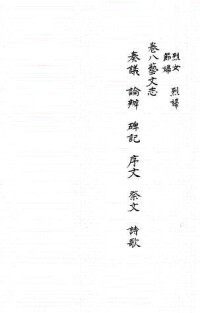 烈女　烈婦
節婦
卷八藝文志
奏議　論辨　碑記　序文　祭文　詩歌